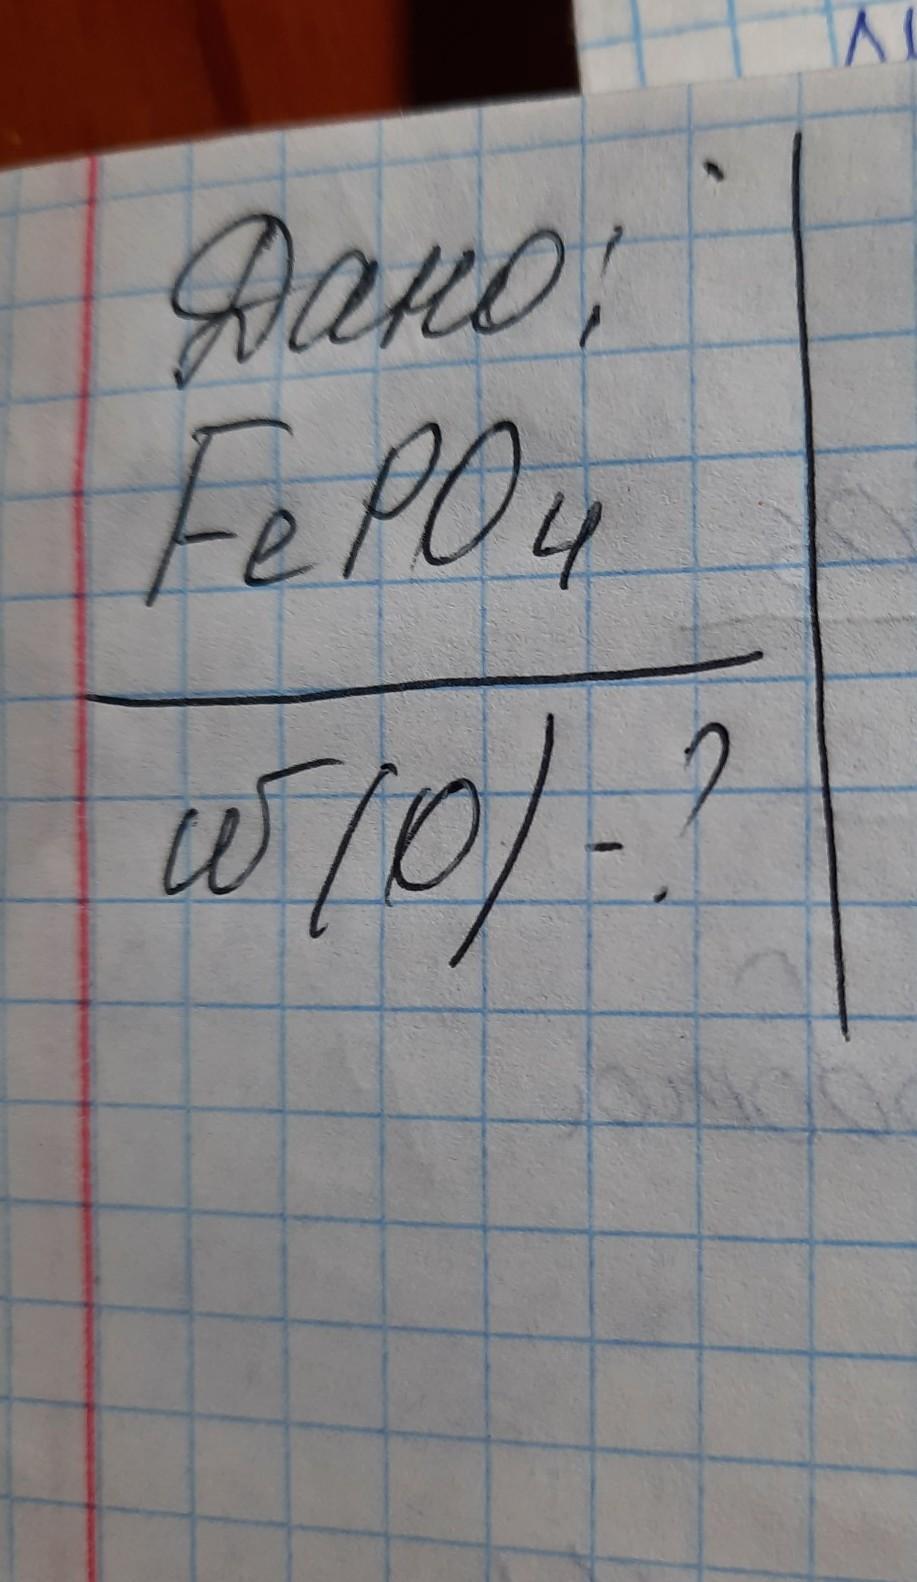 Дано:
FePO₄
w(O) - ?